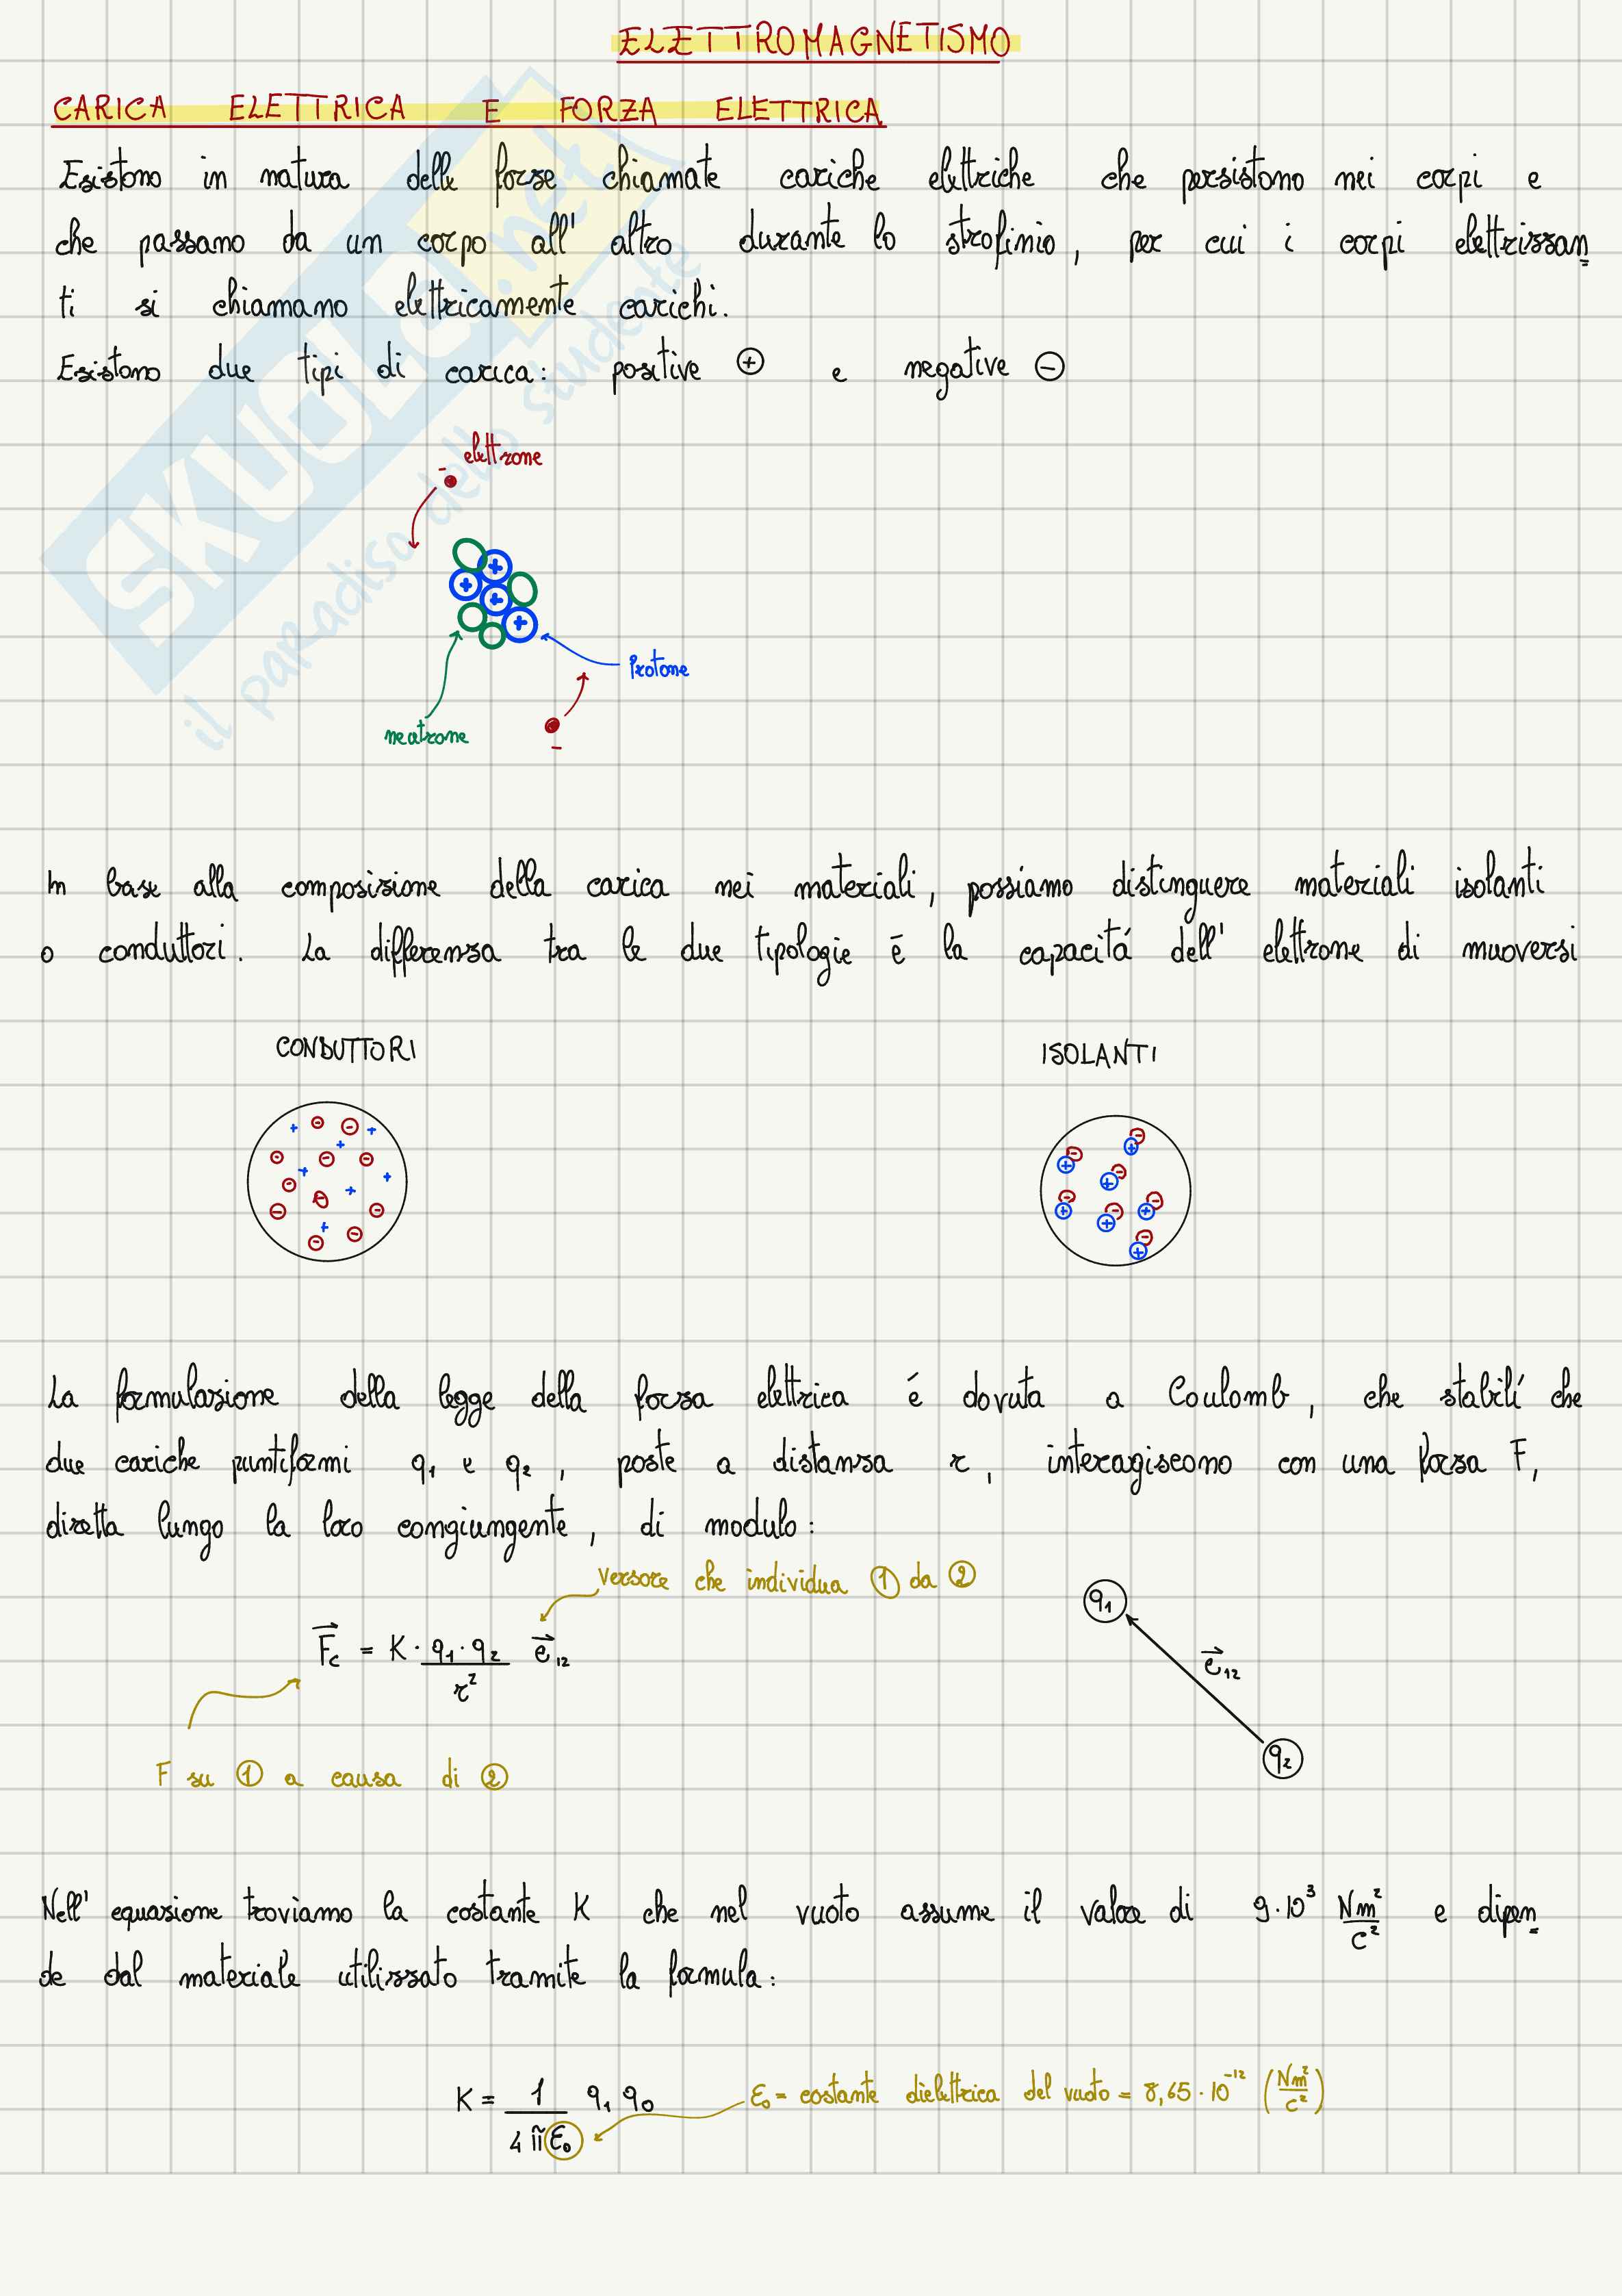 ELETTROMAGNETISMO
CARICA ELETTRICA E FORZA ELETTRICA
Esistono in natura delle forze chiamate cariche elettriche che persistono nei corpi e
che passano da un corpo all' altro durante lo strofinio, per cui i corpi elettrizzan
ti si chiamano elettricamente carichi.
Esistono due tipi di carica: positive ⊕ e negative ⊖
- elettrone
+
+
+
+
Protone
neutrone
-
In base alla composizione della carica nei materiali, possiamo distinguere materiali isolanti
o conduttori. La differenza tra le due tipologie é la capacitá dell' elettrone di muoversi
CONDUTTORI
ISOLANTI
La formulazione della legge della forza elettrica é dovuta a Coulomb, che stabilí che
due cariche puntiformi q₁ e q₂, poste a distanza r, interagiscono con una forza F,
diretta lungo la loro congiungente, di modulo:
versore che individua ① da ②
F⃗c = K · q₁ · q₂ / r² e⃗₁₂
q₁
e⃗₁₂
q₂
F su ① a causa di ②
Nell' equazione troviamo la costante K che nel vuoto assume il valore di 9·10³ Nm²/C² e dipen
de dal materiale utilizzato tramite la formula:
K = 1 / 4πε₀ q₁ q₀
ε₀ = costante dielettrica del vuoto = 8,65·10⁻¹² (Nm²/C²)
SKUOLA.net
il paradiso dello studente